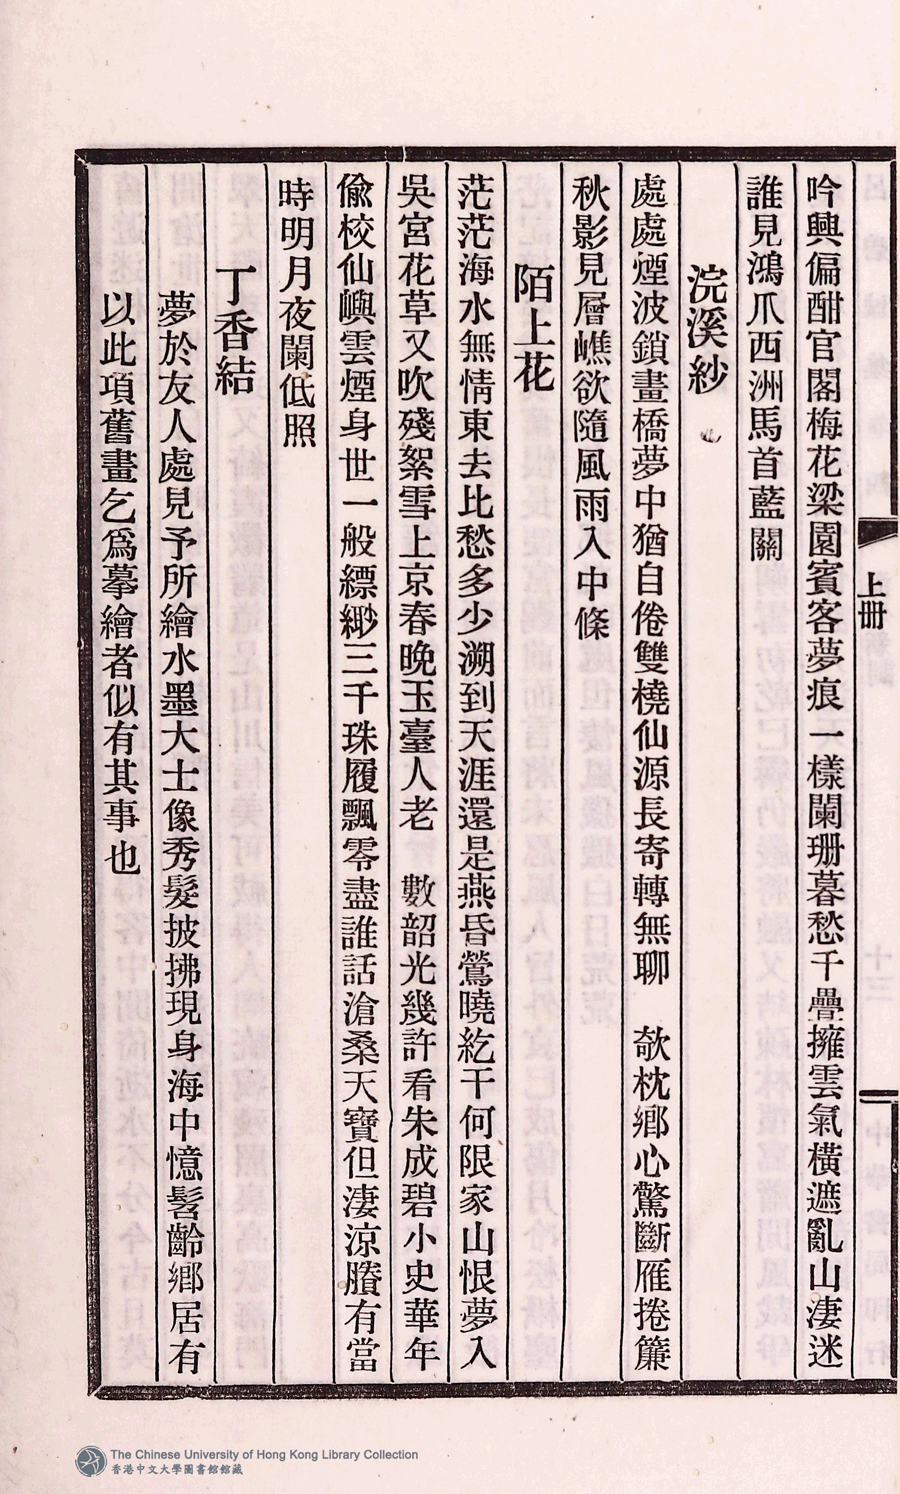 上册
吟興偏酣官閣梅花梁園賓客夢痕一樣闌珊暮愁千疊擁雲氣橫遮亂山淒迷
誰見鴻爪西洲馬首藍關
浣溪紗
處處煙波鎖畫橋夢中猶自倦雙橈仙源長寄轉無聊　欹枕鄉心驚斷雁捲簾
秋影見層嶕欲隨風雨入中條
陌上花
茫茫海水無情東去比愁多少溯到天涯還是燕昏鶯曉紇干何限家山恨夢入
吳宮花草又吹殘絮雪上京春晚玉臺人老　數韶光幾許看朱成碧小史華年
偸校仙嶼雲煙身世一般縹緲三千珠履飄零盡誰話滄桑天寶但淒涼賸有當
時明月夜闌低照
丁香結
夢於友人處見予所繪水墨大士像秀髮披拂現身海中憶髫齡鄉居有
以此項舊畫乞爲摹繪者似有其事也
The Chinese University of Hong Kong Library Collection
香港中文大學圖書館館藏